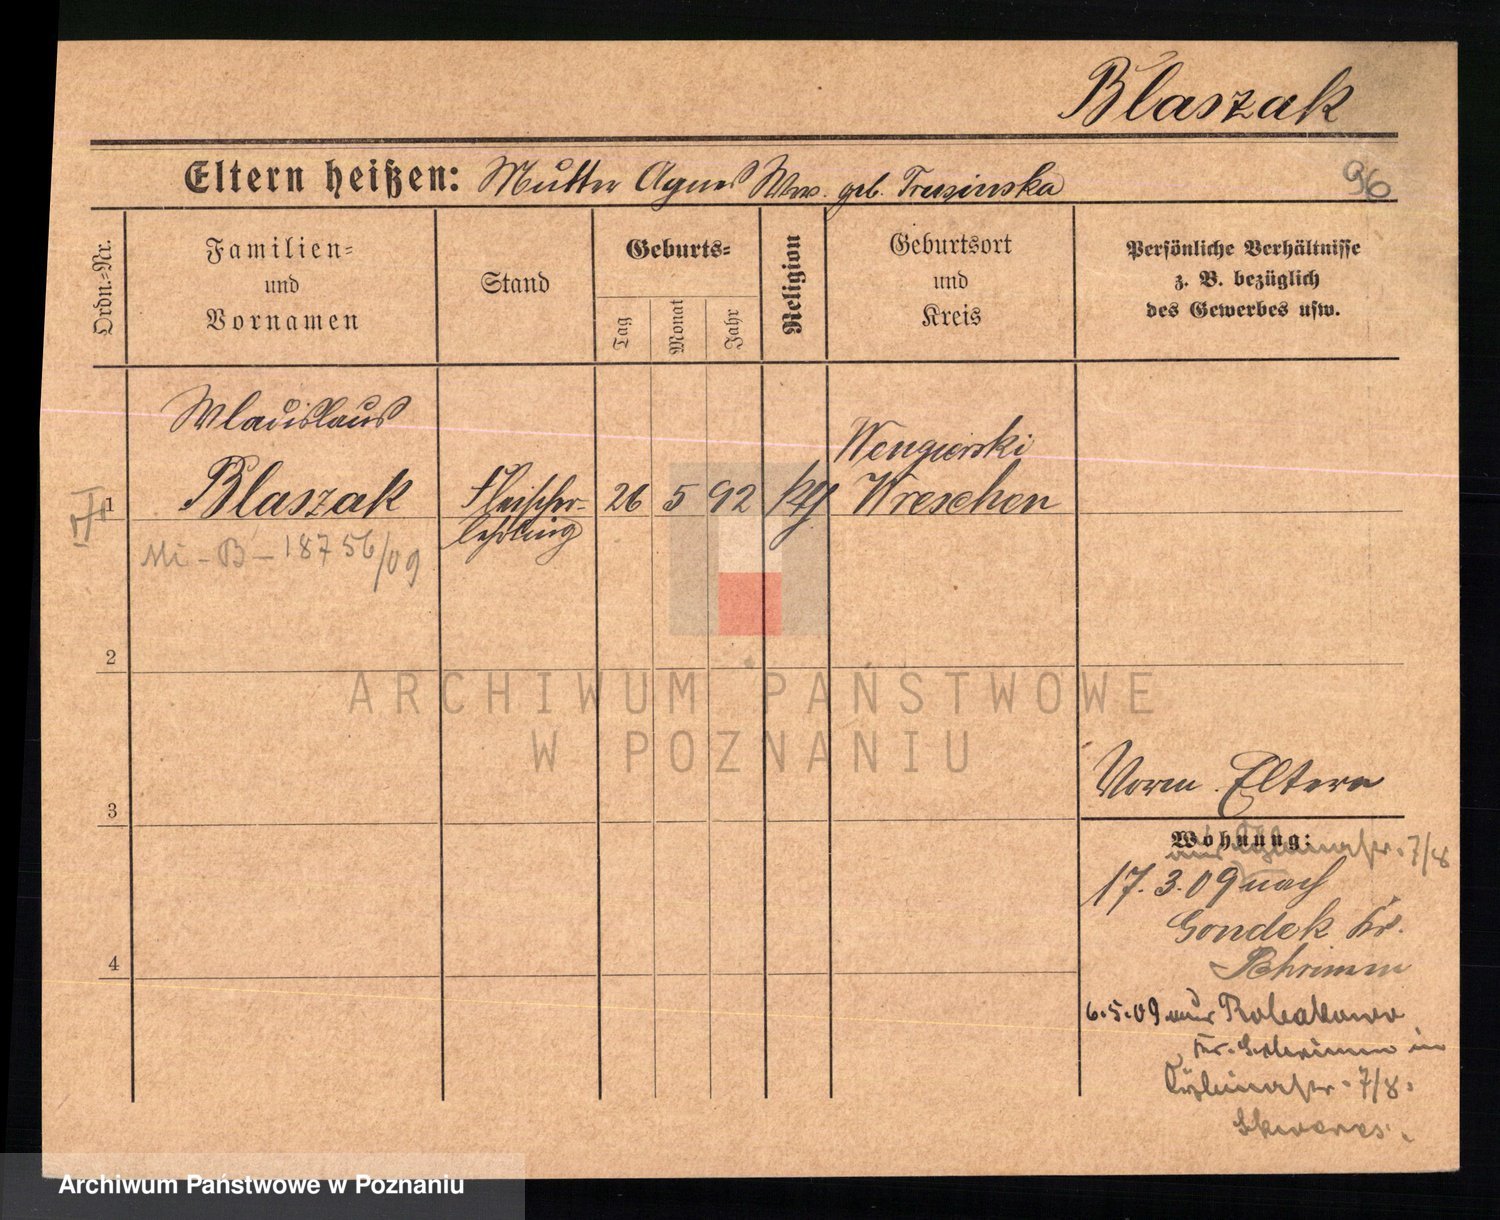 Blaszak
Eltern heißen: Mutter Agnes Wwe. geb. Truszinska
96
Ordn.-Nr.
Familien-
und
Vornamen
Stand
Geburts-
Tag
Monat
Jahr
Religion
Geburtsort
und
Kreis
Persönliche Verhältnisse
z. B. bezüglich
des Gewerbes usw.
Wladislaus
Blaszak
Fleischer-
lehrling
26 5 92
kth
Wengierski
Wreschen
1
Mi - B - 18756/09
2
ARCHIWUM PAŃSTWOWE
W POZNANIU
3
Vorm. Eltern
Wohnung:
7/8
17.3.09 nach
Gondek Kr.
Schrimm
4
6.5.09 aus
Kr. Schrimm in
7/8.
Archiwum Państwowe w Poznaniu